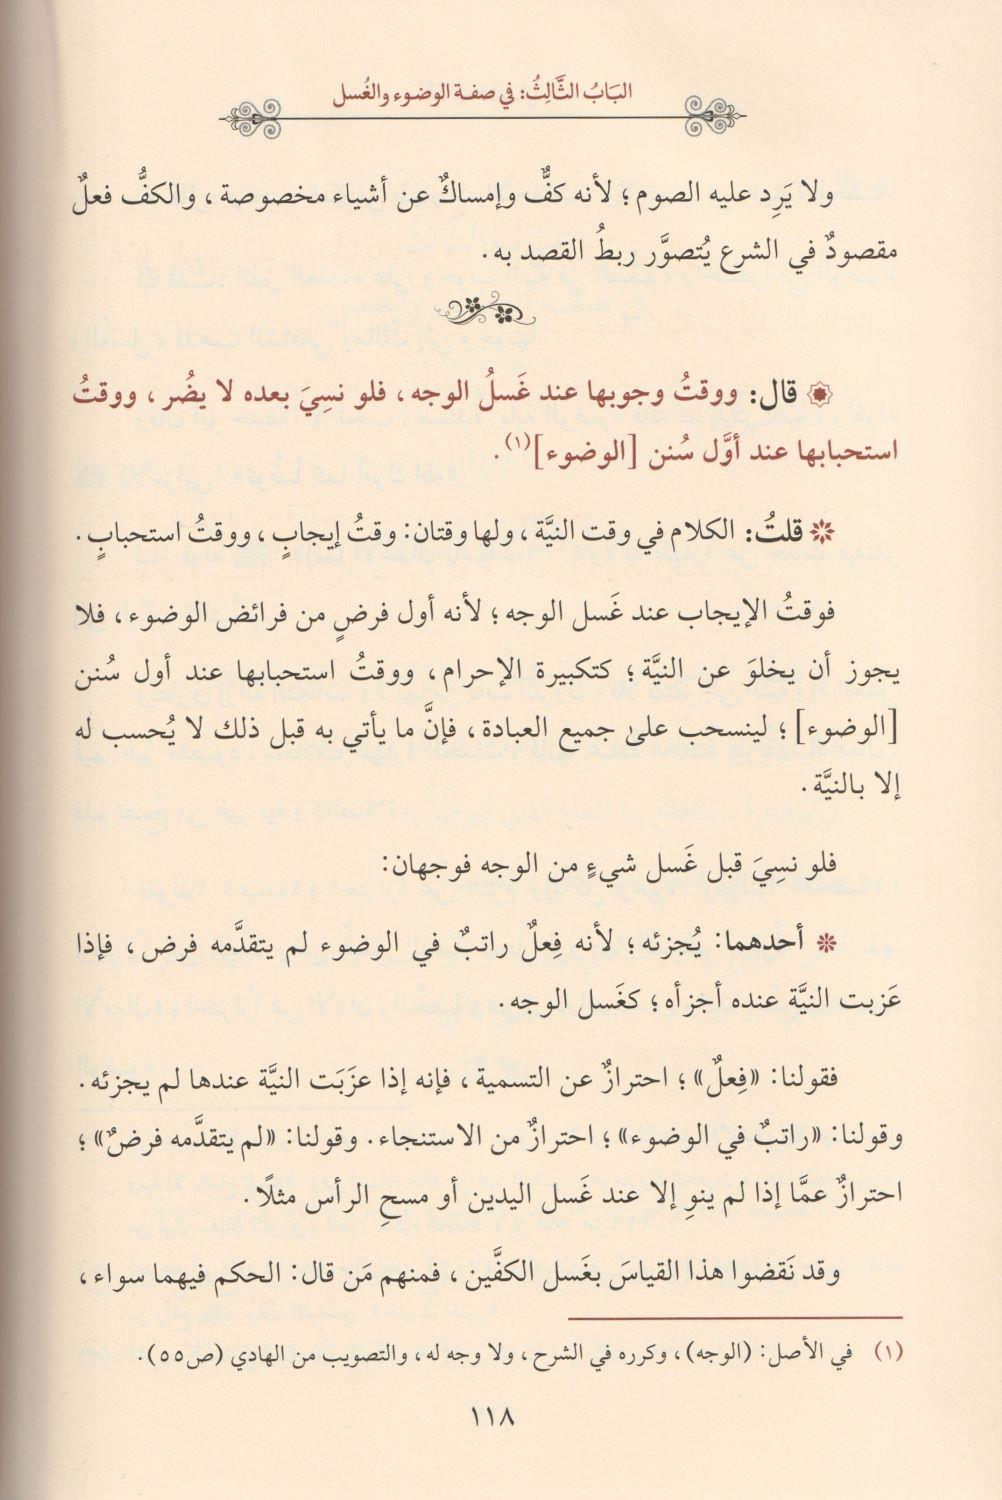 البَابُ الثَّالِثُ: في صفة الوضوء والغُسل
ولا يَرِد عليه الصوم؛ لأنه كفٌّ وإمساكٌ عن أشياء مخصوصة، والكفُّ فعلٌ
مقصودٌ في الشرع يُتصوَّر ربطُ القصد به.
قال: ووقتُ وجوبها عند غَسلُ الوجه، فلو نسِيَ بعده لا يضُر، ووقتُ
استحبابها عند أوَّل سُنن [الوضوء](١).
قلتُ: الكلام في وقت النيَّة، ولها وقتان: وقتُ إيجابٍ، ووقتُ استحبابٍ.
فوقتُ الإيجاب عند غَسل الوجه؛ لأنه أول فرضٍ من فرائض الوضوء، فلا
يجوز أن يخلوَ عن النيَّة؛ كتكبيرة الإحرام، ووقتُ استحبابها عند أول سُنن
[الوضوء]؛ لينسحب علىٰ جميع العبادة، فإنَّ ما يأتي به قبل ذلك لا يُحسب له
إلا بالنيَّة.
فلو نسِيَ قبل غَسل شيءٍ من الوجه فوجهان:
أحدهما: يُجزئه؛ لأنه فِعلٌ راتبٌ في الوضوء لم يتقدَّمه فرض، فإذا
عَزبت النيَّة عنده أجزأه؛ كغَسل الوجه.
فقولنا: «فِعلٌ»؛ احترازٌ عن التسمية، فإنه إذا عزَبَت النيَّة عندها لم يجزئه.
وقولنا: «راتبٌ في الوضوء»؛ احترازٌ من الاستنجاء. وقولنا: «لم يتقدَّمه فرضٌ»؛
احترازٌ عمَّا إذا لم ينوِ إلا عند غَسل اليدين أو مسحِ الرأس مثلًا.
وقد نَقضوا هذا القياسَ بغَسل الكفَّين، فمنهم مَن قال: الحكم فيهما سواء،
(١) في الأصل: (الوجه)، وكرره في الشرح، ولا وجه له، والتصويب من الهادي (ص٥٥).
١١٨